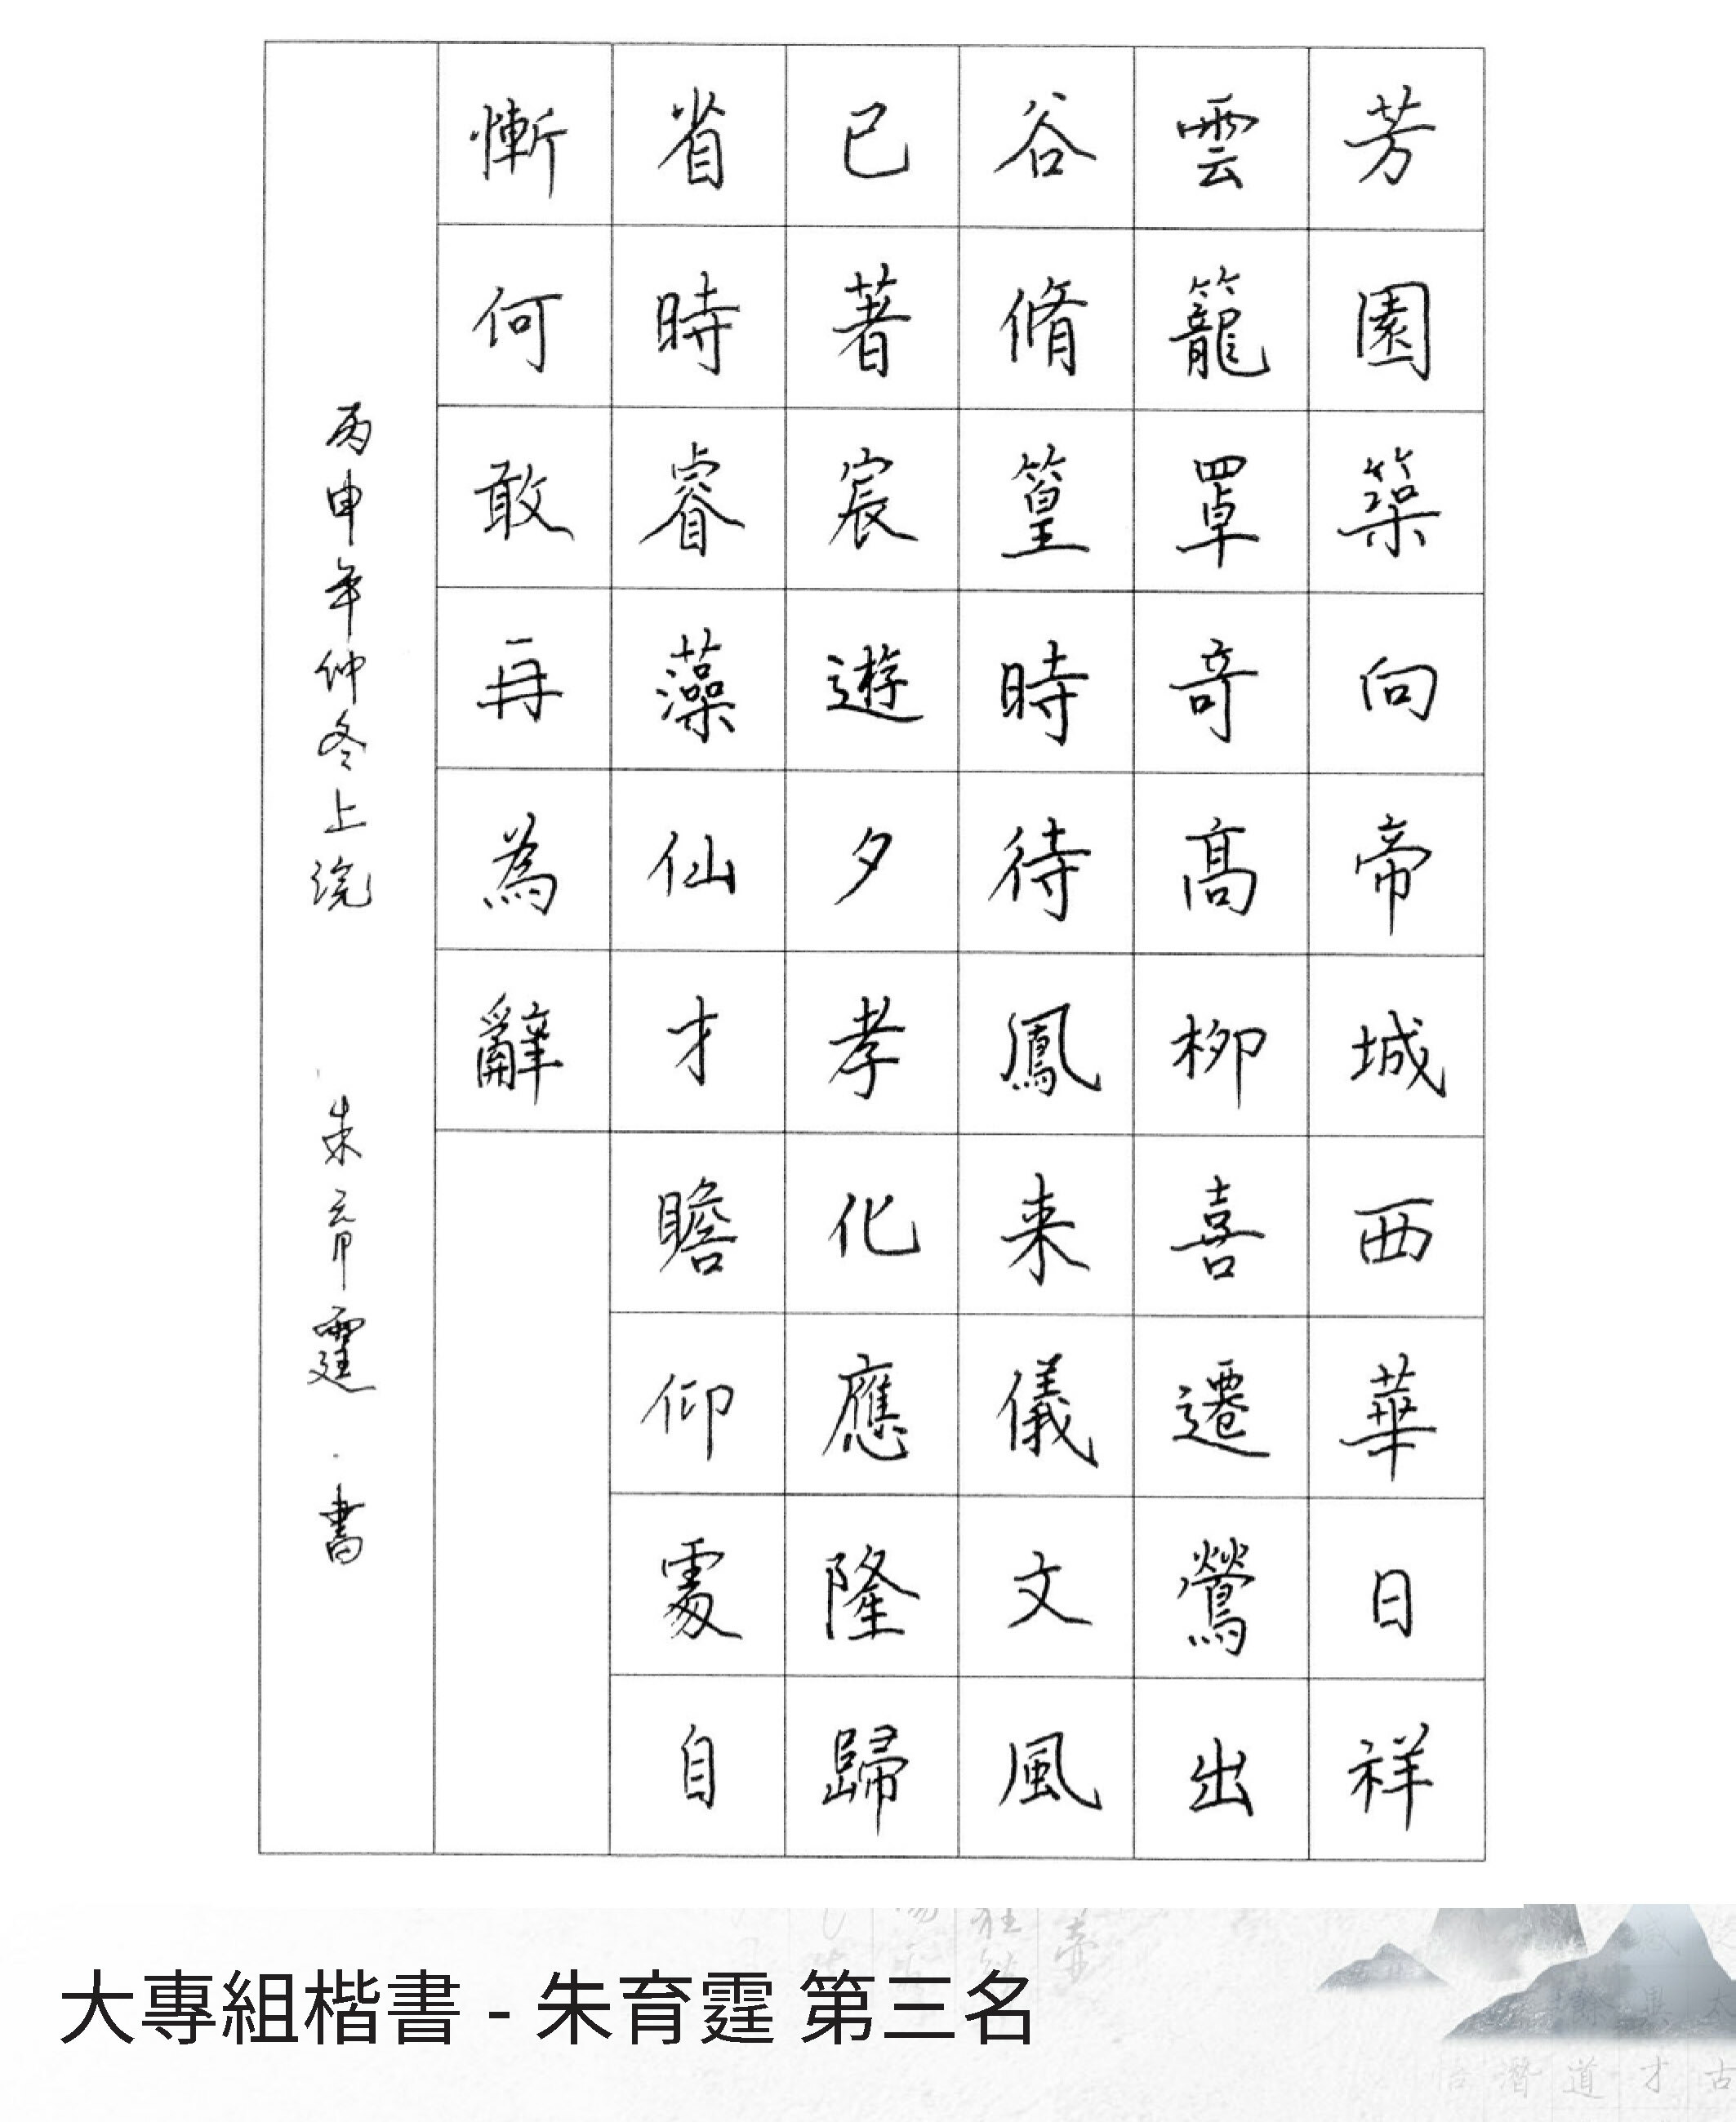 芳園築向帝城西華日祥
雲籠罩竒髙栁喜遷鶯出
谷脩篁時待鳳来儀文風
已著宸遊夕孝化應隆歸
省時睿藻仙才瞻仰處自
慚何敢再為辭
丙申年仲冬上浣 朱育霆 書
大專組楷書 - 朱育霆 第三名